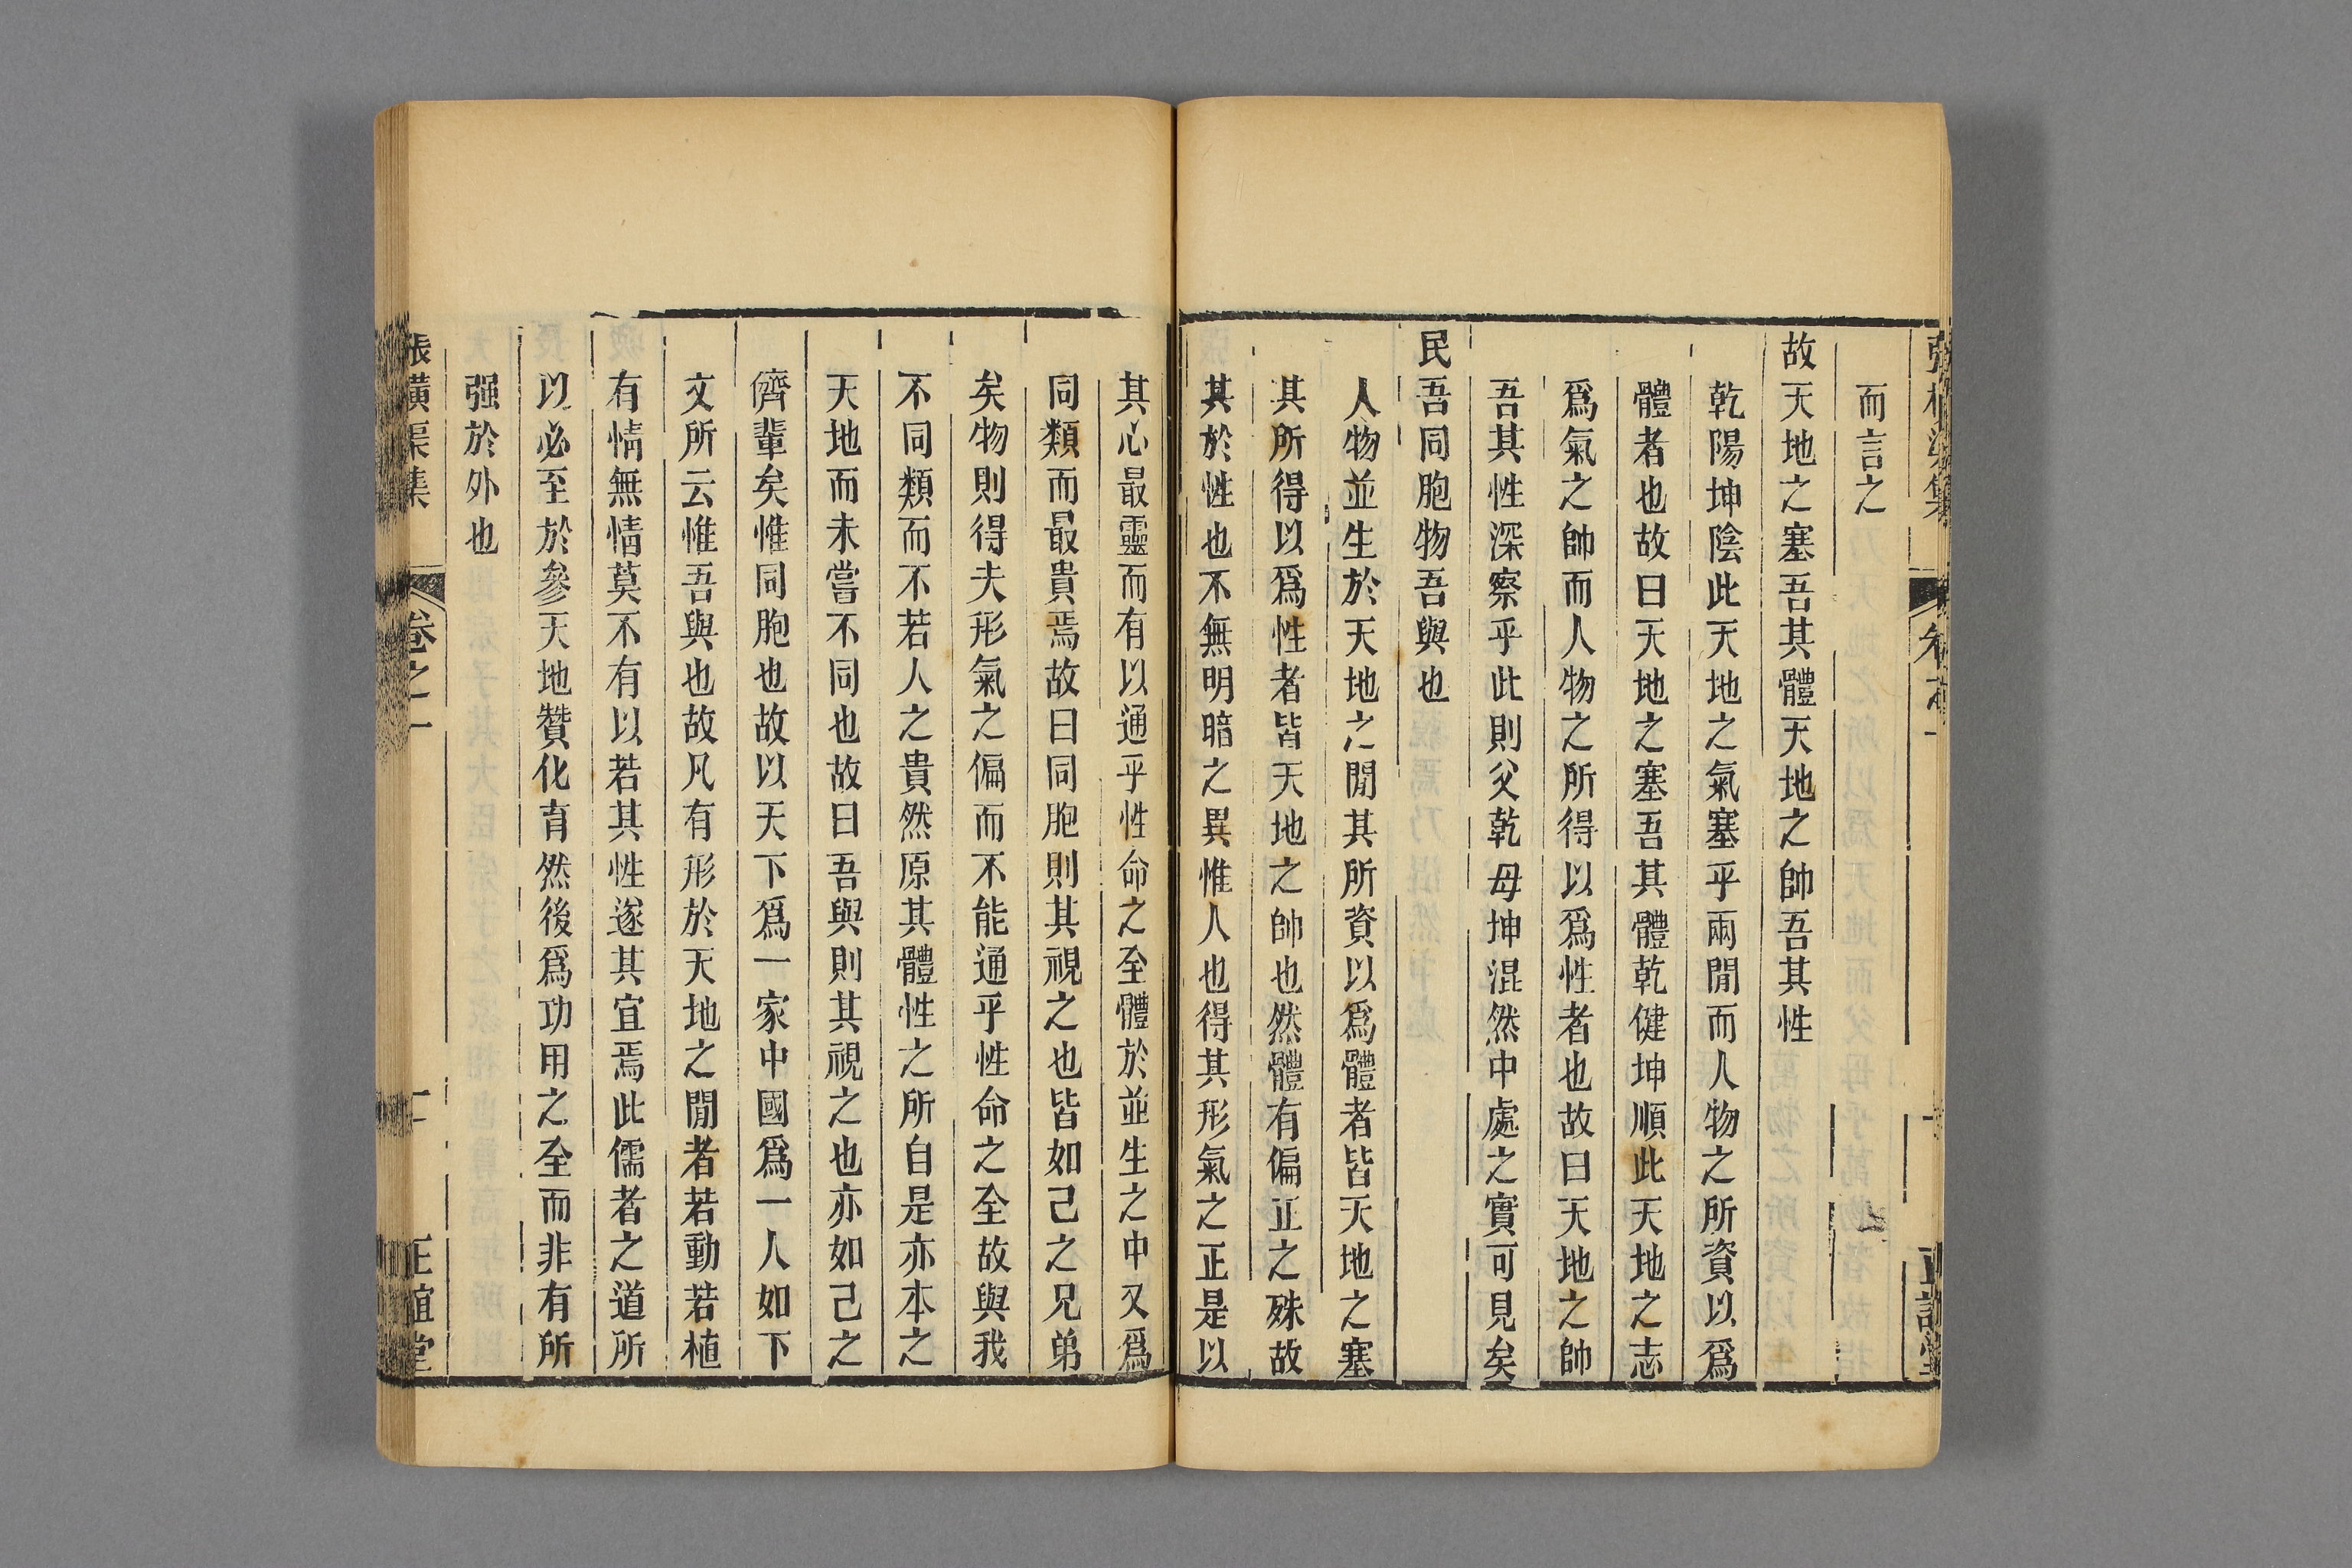 而言之
故天地之塞吾其體天地之帥吾其性
乾陽坤陰此天地之氣塞乎兩閒而人物之所資以爲
體者也故曰天地之塞吾其體乾健坤順此天地之志
爲氣之帥而人物之所得以爲性者也故曰天地之帥
吾其性深察乎此則父乾母坤混然中處之實可見矣
民吾同胞物吾與也
人物並生於天地之閒其所資以爲體者皆天地之塞
其所得以爲性者皆天地之帥也然體有偏正之殊故
其於性也不無明暗之異惟人也得其形氣之正是以
其心最靈而有以通乎性命之全體於並生之中又爲
同類而最貴焉故曰同胞則其視之也皆如己之兄弟
矣物則得夫形氣之偏而不能通乎性命之全故與我
不同類而不若人之貴然原其體性之所自是亦本之
天地而未嘗不同也故曰吾與則其視之也亦如己之
儕輩矣惟同胞也故以天下爲一家中國爲一人如下
文所云惟吾與也故凡有形於天地之閒者若動若植
有情無情莫不有以若其性遂其宜焉此儒者之道所
以必至於參天地贊化育然後爲功用之全而非有所
强於外也
張橫渠集 卷之一 二 正誼堂